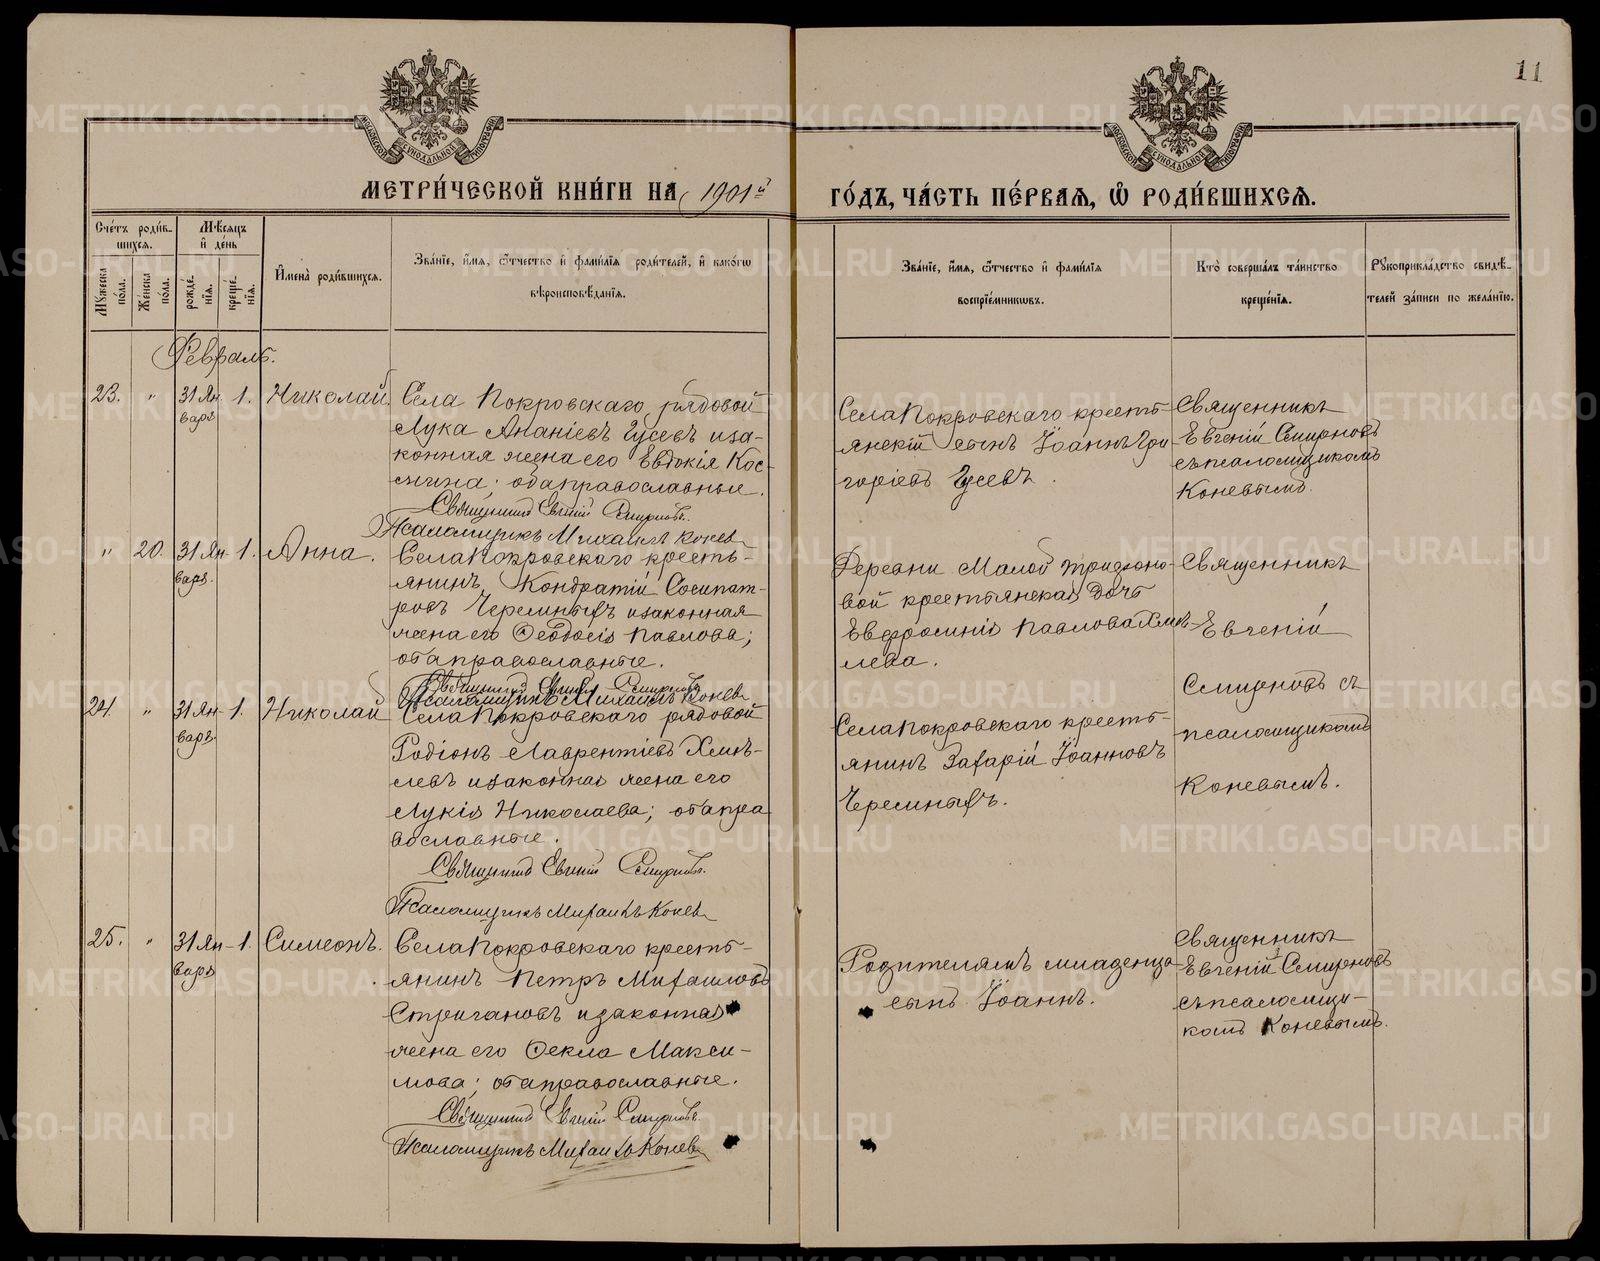 11
МОСКОВСКОЙ СѴНОДАЛЬНОЙ ТИПОГРАФІИ
МОСКОВСКОЙ СѴНОДАЛЬНОЙ ТИПОГРАФІИ
МЕТРИ́ЧЕСКОЙ КНИ́ГИ НА 1901й
ГО́ДЪ, ЧА́СТЬ ПЕ́РВАѦ, Ѽ РОДИ́ВШИХСѦ.
Сче́тъ роди́в-
шихся.
Мѣсяцъ
и де́нь
Мꙋжеска
по́ла.
Же́нска
по́ла.
рожде́-
нія.
креще́-
нія.
И҆мена̀ роди́вшихся.
Зва́ніе, и҆́мя, ѻ҆́тчество и҆ фами́лія роди́телей, и҆ како́гѡ
вѣроисповѣ́данія.
Зва́ніе, и҆́мя, ѻ҆́тчество и҆ фами́лія
воспріе́мникѡвъ.
Кто̀ соверша́лъ та́инство
креще́нія.
Рꙋкоприкла́дство свидѣ́-
телей за́писи по жела́нію.
Февраль.
23. " 31 Ян- 1. Николай
варя
Села Покровскаго рядовой
Лука Ананіевъ Гусевъ и за-
конная жена его Евдокія Кос-
оба православные.
Священникъ Евгеній Смирновъ.
Псаломщикъ Михаилъ Конев
Села Покровскаго кресть-
янскій сынъ Іоаннъ Гри
горіевъ Гусевъ.
Священникъ
Евгеній Смирновъ
съ псаломщикомъ
Коневымъ.
" 20. 31 Ян- 1. Анна.
варя.
Села Покровскаго кресть-
янинъ Кондратій Сосипат-
ровъ Черемныхъ и законная
жена его Ѳеодосія Павлова;
оба православные.
Священникъ Евгеній Смирновъ
Псаломщикъ Михаилъ Конев
Деревни Малой Трифоно-
вой крестьянская дочь
Евфросинія Павлова Хмѣ-
лева.
Священникъ
Евгеній
Смирновъ съ
псаломщикомъ
Коневымъ.
24. " 31 Ян- 1. Николай
варя.
Села Покровскаго рядовой
Родіонъ Лаврентіевъ Хмѣ-
левъ и законная жена его
Лукія Николаева; оба пра
вославные.
Священникъ Евгеній Смирновъ.
Псаломщикъ Михаилъ Конев
Села Покровскаго кресть-
янинъ Захарій Іоанновъ
Черемныхъ.
25. " 31 Ян- 1. Симеонъ.
варя
Села Покровскаго кресть-
янинъ Петръ Михаиловъ
Стригановъ и законная
жена его Ѳекла Макси-
мова; оба православные.
Священникъ Евгеній Смирновъ.
Псаломщикъ Михаилъ Конев
Родителямъ младенца
сынъ Іоаннъ.
Священникъ
Евгеній Смирновъ
съ псаломщи-
комъ Коневымъ.
METRIKI.GASO-URAL.RU